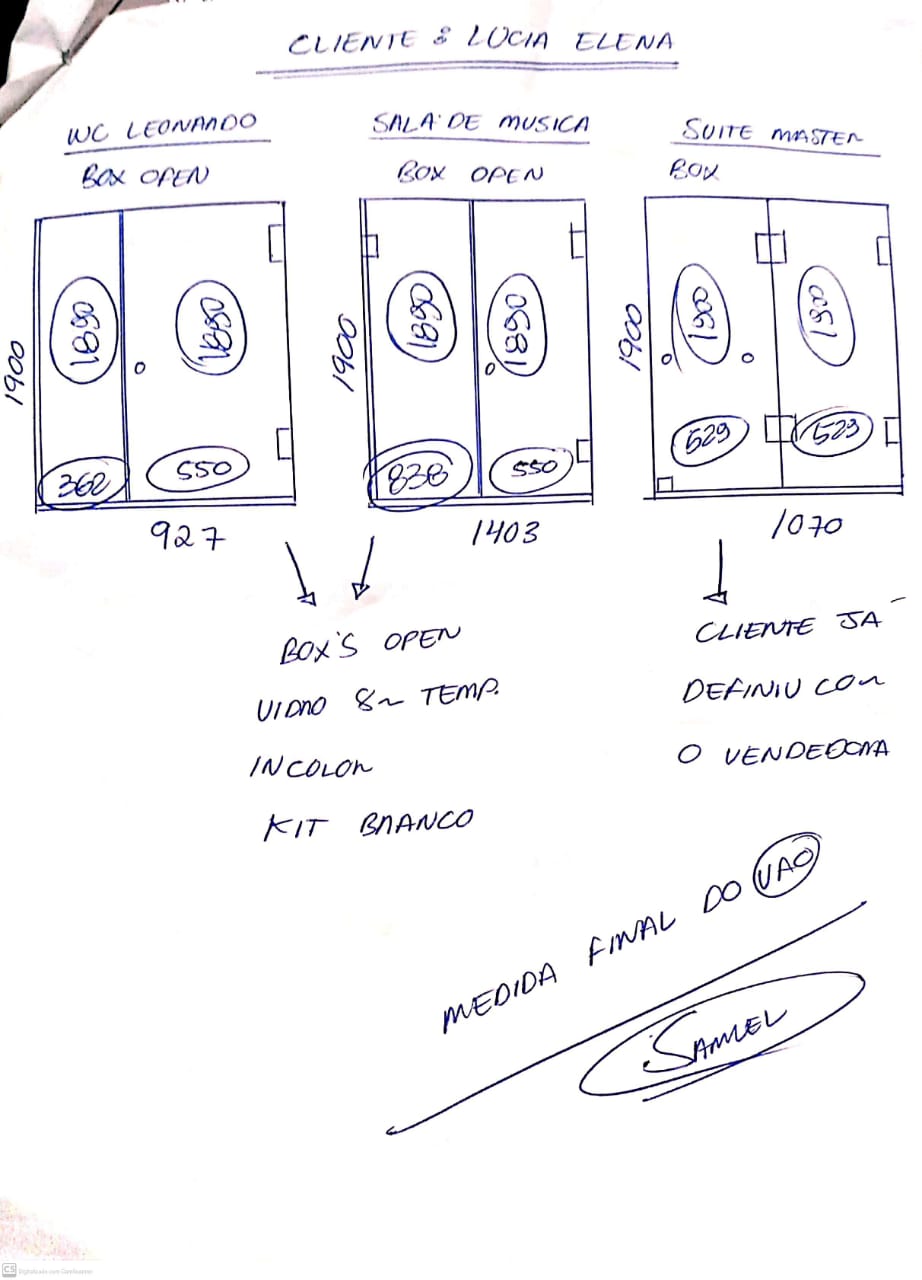 CLIENTE : LUCIA ELENA
WC LEONARDO
BOX OPEN
1900
1880
1880
362
550
927
SALA DE MUSICA
BOX OPEN
1900
1890
1890
838
550
1403
SUITE MASTER
BOX
1900
1900
1800
529
523
1070
BOX'S OPEN
VIDRO 8m TEMP.
INCOLOR
KIT BRANCO
CLIENTE JÁ
DEFINIU COM
O VENDEDORA
MEDIDA FINAL DO VAO
SAMUEL
CS Digitalizado com CamScanner